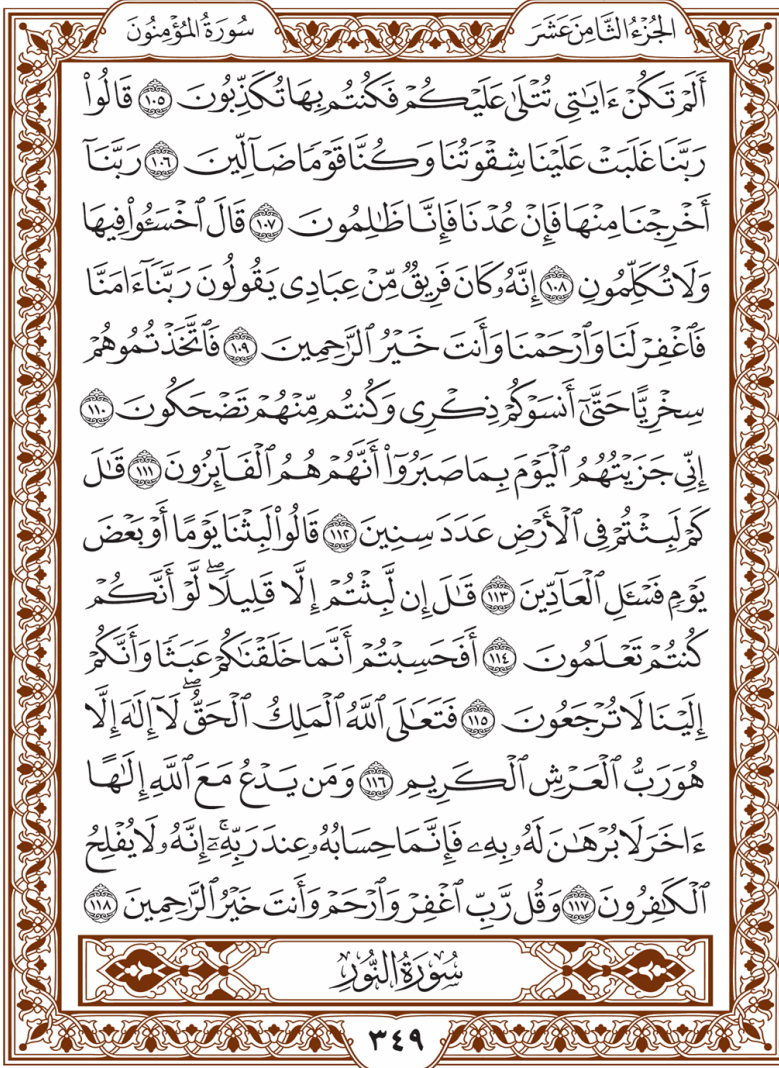 الجُزْءُ الثَّامِنَ عَشَرَ
سُورَةُ المُؤْمِنُونَ
أَلَمْ تَكُنْ ءَايَٰتِى تُتْلَىٰ عَلَيْكُمْ فَكُنتُم بِهَا تُكَذِّبُونَ ١٠٥ قَالُوا۟
رَبَّنَا غَلَبَتْ عَلَيْنَا شِقْوَتُنَا وَكُنَّا قَوْمًا ضَآلِّينَ ١٠٦ رَبَّنَآ
أَخْرِجْنَا مِنْهَا فَإِنْ عُدْنَا فَإِنَّا ظَٰلِمُونَ ١٠٧ قَالَ ٱخْسَـُٔوا۟ فِيهَا
وَلَا تُكَلِّمُونِ ١٠٨ إِنَّهُۥ كَانَ فَرِيقٌ مِّنْ عِبَادِى يَقُولُونَ رَبَّنَآ ءَامَنَّا
فَٱغْفِرْ لَنَا وَٱرْحَمْنَا وَأَنتَ خَيْرُ ٱلرَّٰحِمِينَ ١٠٩ فَٱتَّخَذْتُمُوهُمْ
سِخْرِيًّا حَتَّىٰٓ أَنسَوْكُمْ ذِكْرِى وَكُنتُم مِّنْهُمْ تَضْحَكُونَ ١١٠
إِنِّى جَزَيْتُهُمُ ٱلْيَوْمَ بِمَا صَبَرُوٓا۟ أَنَّهُمْ هُمُ ٱلْفَآئِزُونَ ١١١ قَٰلَ
كَمْ لَبِثْتُمْ فِى ٱلْأَرْضِ عَدَدَ سِنِينَ ١١٢ قَالُوا۟ لَبِثْنَا يَوْمًا أَوْ بَعْضَ
يَوْمٍ فَسْـَٔلِ ٱلْعَآدِّينَ ١١٣ قَٰلَ إِن لَّبِثْتُمْ إِلَّا قَلِيلًا ۖ لَّوْ أَنَّكُمْ
كُنتُمْ تَعْلَمُونَ ١١٤ أَفَحَسِبْتُمْ أَنَّمَا خَلَقْنَٰكُمْ عَبَثًا وَأَنَّكُمْ
إِلَيْنَا لَا تُرْجَعُونَ ١١٥ فَتَعَٰلَى ٱللَّهُ ٱلْمَلِكُ ٱلْحَقُّ ۖ لَآ إِلَٰهَ إِلَّا
هُوَ رَبُّ ٱلْعَرْشِ ٱلْكَرِيمِ ١١٦ وَمَن يَدْعُ مَعَ ٱللَّهِ إِلَٰهًا
ءَاخَرَ لَا بُرْهَٰنَ لَهُۥ بِهِۦ فَإِنَّمَا حِسَابُهُۥ عِندَ رَبِّهِۦٓ ۚ إِنَّهُۥ لَا يُفْلِحُ
ٱلْكَٰفِرُونَ ١١٧ وَقُل رَّبِّ ٱغْفِرْ وَٱرْحَمْ وَأَنتَ خَيْرُ ٱلرَّٰحِمِينَ ١١٨
سُورَةُ النُّورِ
٣٤٩